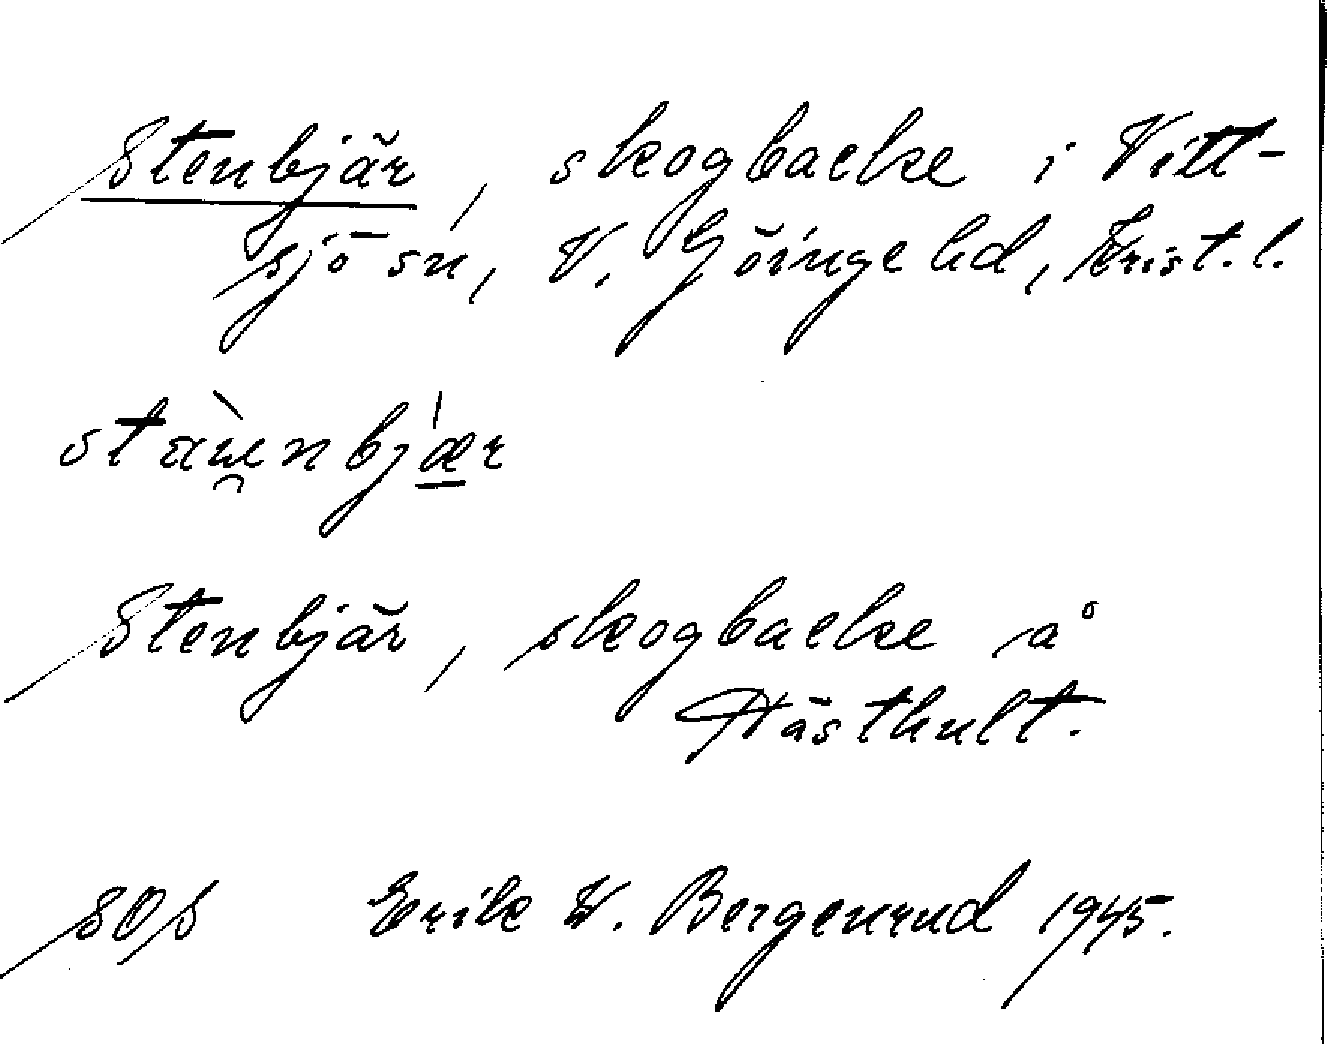 Stenbjär, skogbacke i Vitt-
sjö sn, V. Göinge hd, Krist. l.
Stenbjär, skogbacke å
Hästhult.
SOS Erik W. Bergenrud 1945.